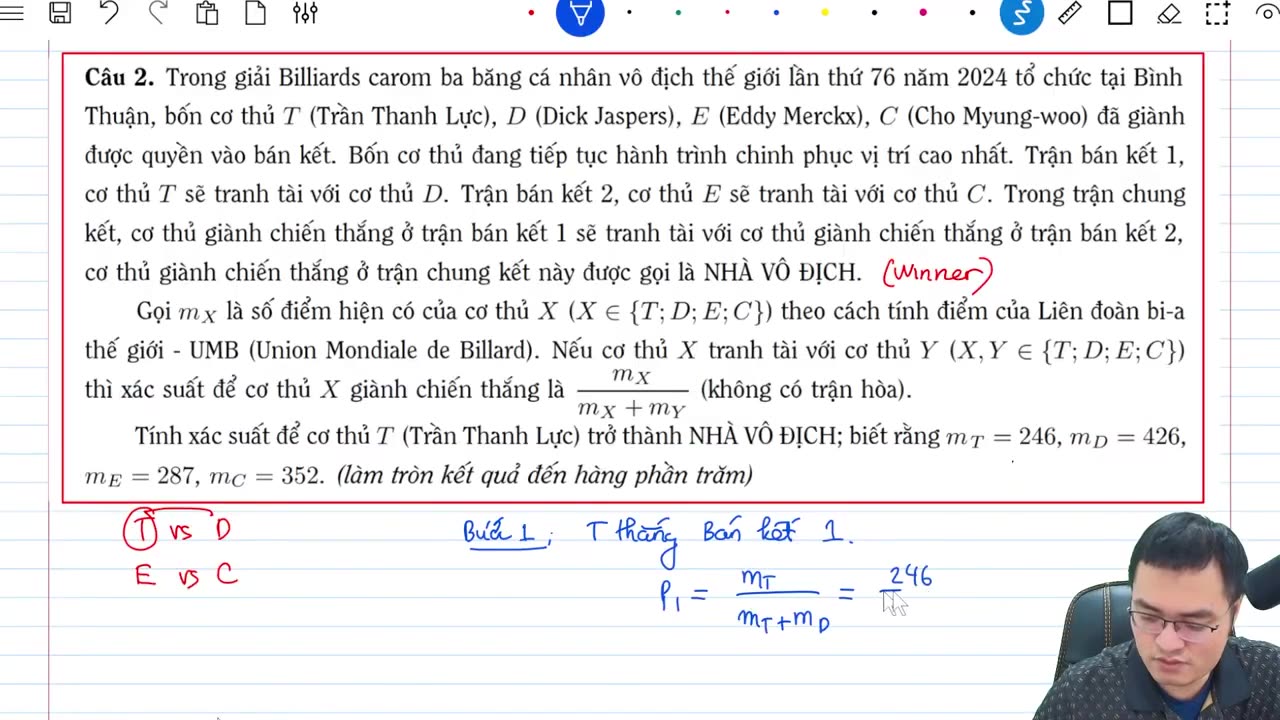 Câu 2. Trong giải Billiards carom ba băng cá nhân vô địch thế giới lần thứ 76 năm 2024 tổ chức tại Bình
Thuận, bốn cơ thủ T (Trần Thanh Lực), D (Dick Jaspers), E (Eddy Merckx), C (Cho Myung-woo) đã giành
được quyền vào bán kết. Bốn cơ thủ đang tiếp tục hành trình chinh phục vị trí cao nhất. Trận bán kết 1,
cơ thủ T sẽ tranh tài với cơ thủ D. Trận bán kết 2, cơ thủ E sẽ tranh tài với cơ thủ C. Trong trận chung
kết, cơ thủ giành chiến thắng ở trận bán kết 1 sẽ tranh tài với cơ thủ giành chiến thắng ở trận bán kết 2,
cơ thủ giành chiến thắng ở trận chung kết này được gọi là NHÀ VÔ ĐỊCH. (Winner)
Gọi m_X là số điểm hiện có của cơ thủ X (X ∈ {T; D; E; C}) theo cách tính điểm của Liên đoàn bi-a
thế giới - UMB (Union Mondiale de Billard). Nếu cơ thủ X tranh tài với cơ thủ Y (X, Y ∈ {T; D; E; C})
thì xác suất để cơ thủ X giành chiến thắng là m_X / (m_X + m_Y) (không có trận hòa).
Tính xác suất để cơ thủ T (Trần Thanh Lực) trở thành NHÀ VÔ ĐỊCH; biết rằng m_T = 246, m_D = 426,
m_E = 287, m_C = 352. (làm tròn kết quả đến hàng phần trăm)
T vs D
E vs C
Bước 1: T thắng Bán kết 1.
P_1 = m_T / (m_T + m_D) = 246